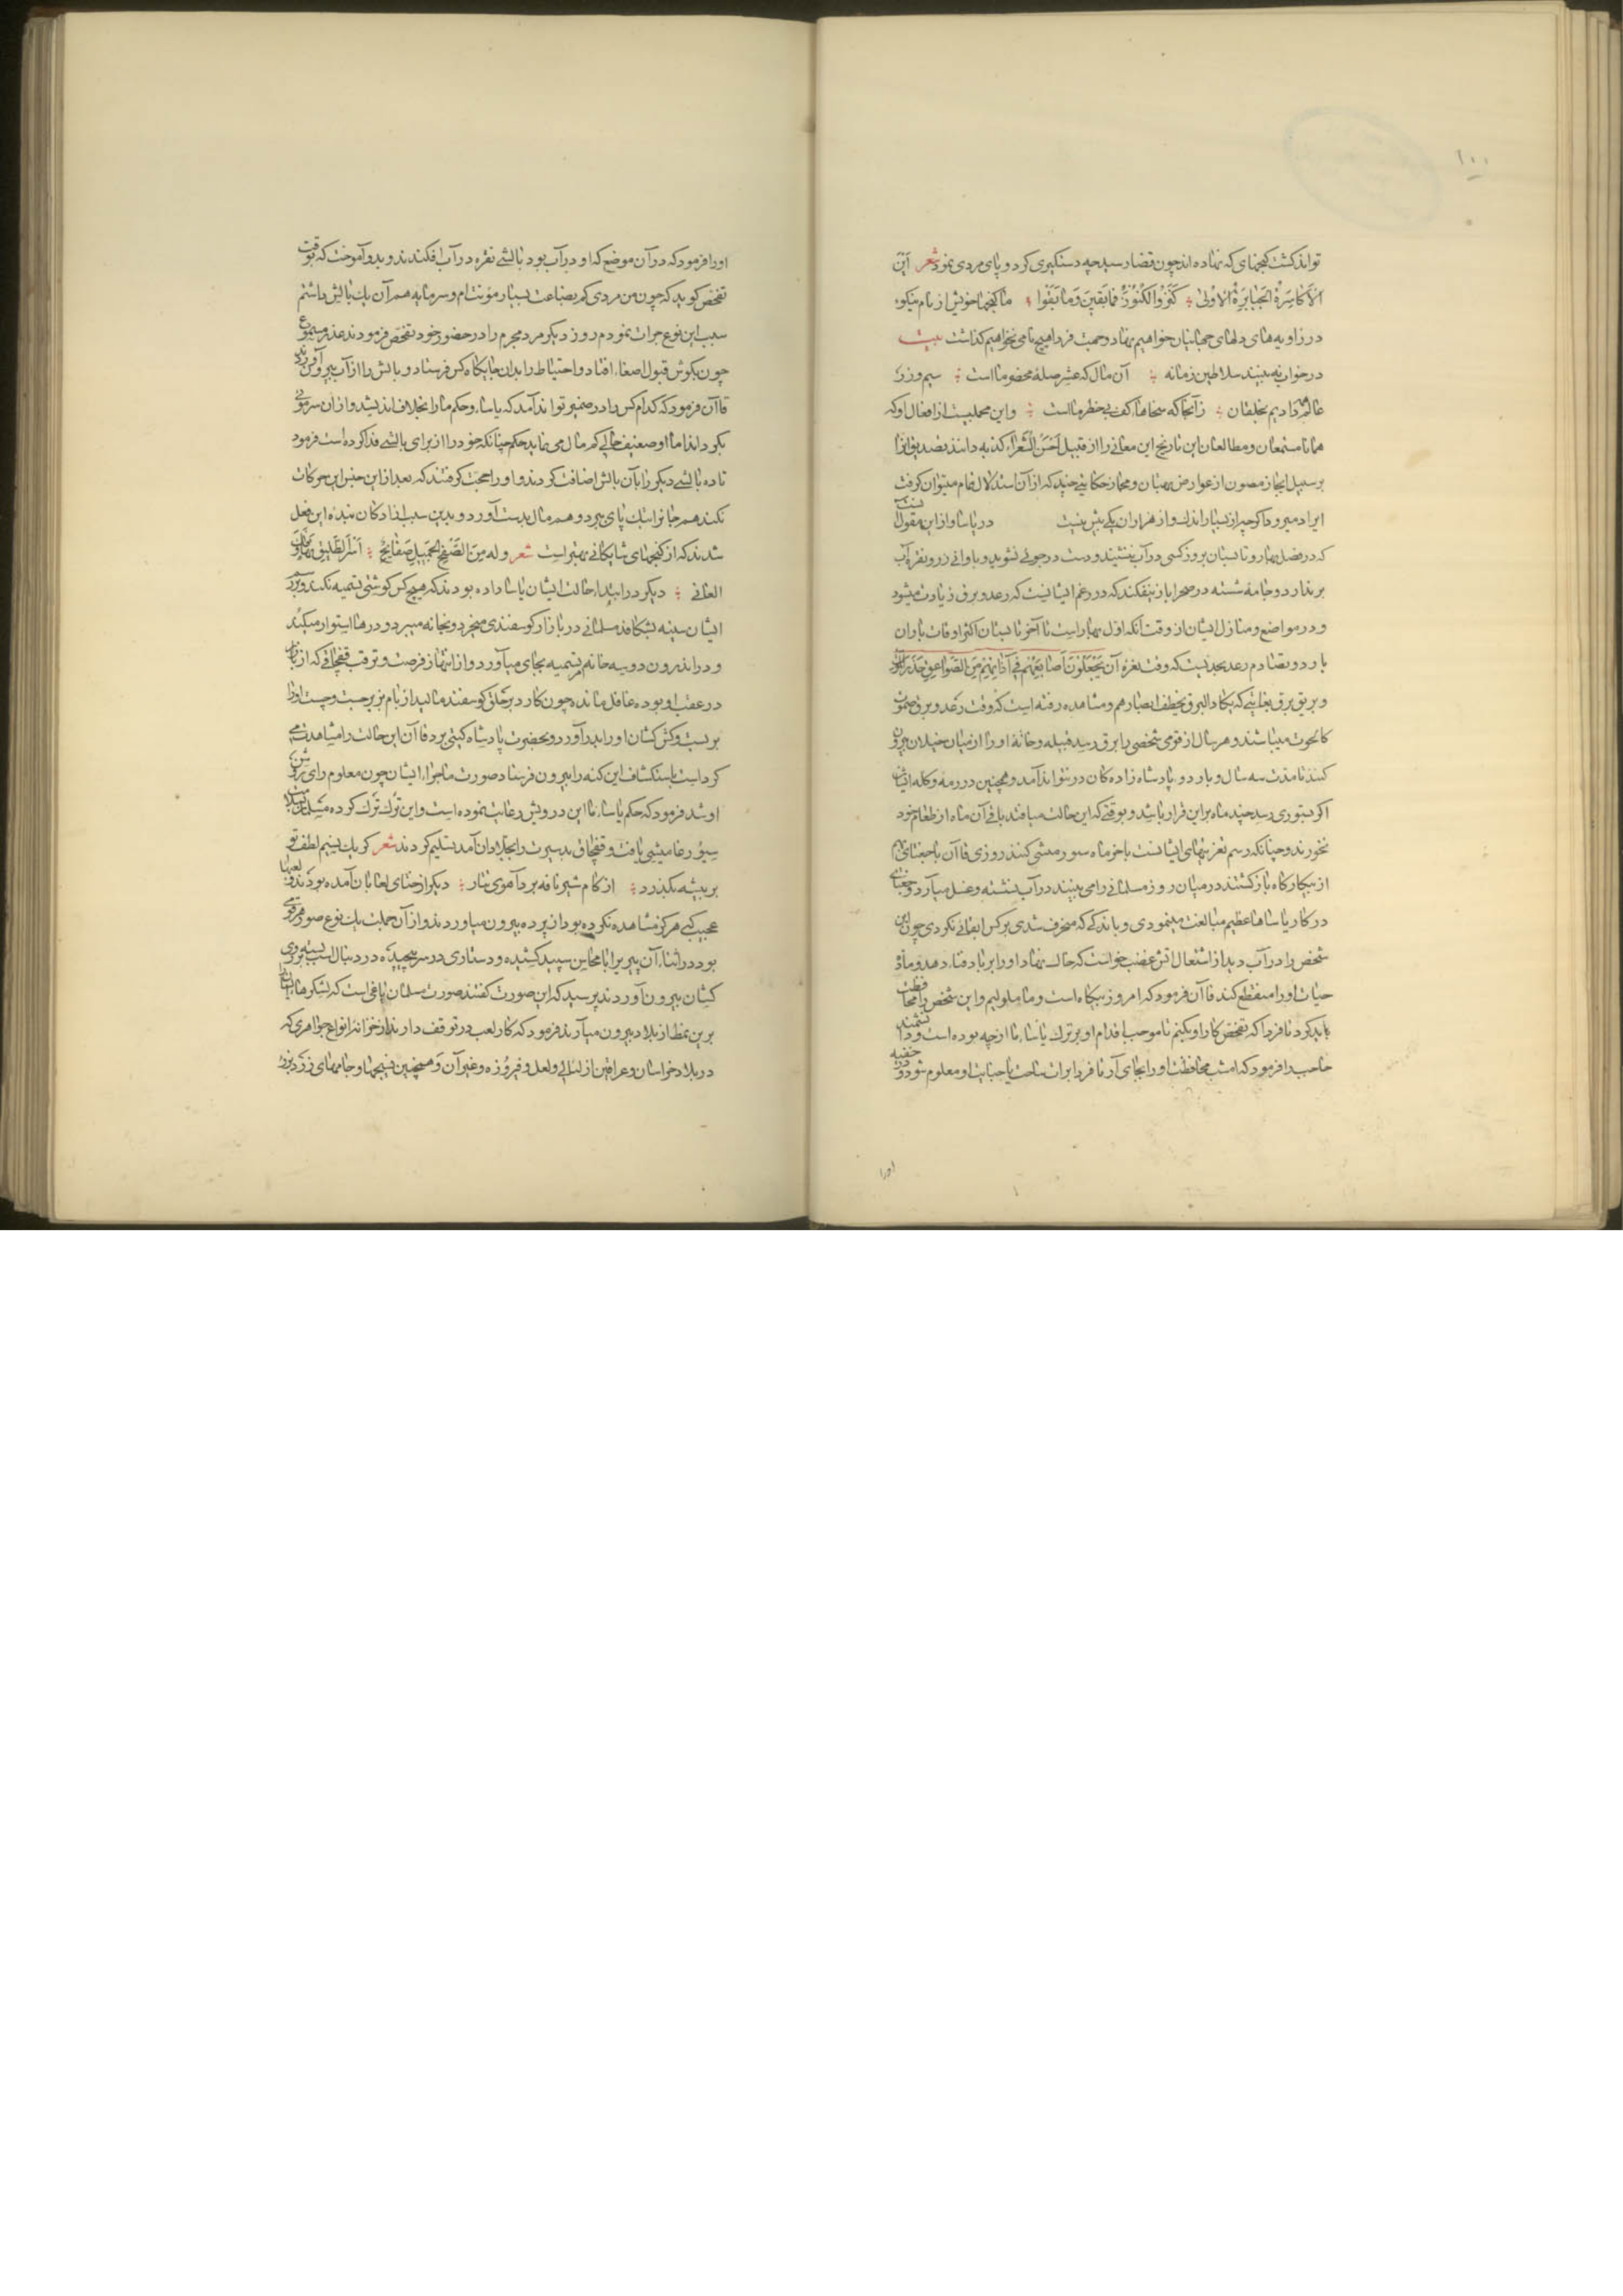 ١٠٠
تواند کشت کنجهای که نهاده اند چون قضا رسید چه دستکیری کرد و پای مردی نمود شعر این
الاکاسرة الجبابرة الاولی کنزوا الکنوز فما بقین وما بقوا ما کنجها خویش از نام نیکو
در زاویه های دلهای جهانیان خواهیم نهاد و جهت فردا هیچ نامی نخواهیم کذاشت بیت
در خواب نه بینند سلاطین زمانه آن مال که عشر صلۀ محضر ما است سیم و زر
عالم دادیم بخلقان زآنجا که سخاها کف بی خطر ما است واین مجملیست از افعال او که
همانا مستمعان و مطالعان این تاریخ این معانی را از قبیل احسن الشعراء کذبه دانند تصدیق آنرا
بر سبیل ایجاز مصون از عوارض بهتان و مجاز حکایتی چند که از آن استدلال تمام میتوان کرفت
ایراد میرود اکر چه از بسیار اندک و از هزاران یکی بیش نیست در یاسا و آذین مقول است
که در فصل بهار و تابستان بروز کسی در آب ننشیند و دست در جوئی نشوید و باوانی زر و نقره آب
بر ندارد و جامۀ شسته در صحرا باز نیفکند که در زعم ایشانست که رعد و برق زیادت میشود
و در مواضع و منازل ایشان از وقت آنکه اول بهار است تا آخر تابستان اکثر اوقات باران
بارد و تصادم رعد بحدیست که وقت نعرۀ آن یجعلون اصابعهم فی آذانهم من الصواعق حذر الموت
و بریق برق بغایتی که یکاد البرق یخطف ابصارهم و مشاهده رفته است که وقت رعد و برق صموت
کالحوت میباشند و هر سال از قومی شخصی را برق رسد قبیله و خانۀ او را از میان خیلان بیرون
کنند تا مدت سه سال و بار دو پادشاه زاده کان در نتواند آمد و همچنین در رمه و کله ایشان
اکر ستوری رسد چند ماه بر این قرار باشد و بوقتی که این حالت میافتد باقی آن ماه از طعام خود
نخورند و چنانکه رسم تغزیتهای ایشانست باخر ماه سورمیشی کنند روزی قاآن با جغتای بهم
از شکارکاه باز کشتند در میان روز مسلمانی را می بینند در آب نشسته و غسل میآرد و جغتای
در کار یاساها عظیم مبالغت مینمودی و باندکی که منحرف شدی بر کس ابقائی نکردی چون این
شخص را در آب دید از اشتعال آتش غضب خواست که خاک نهاد او را بر باد فنا دهد و مادۀ
حیات او را منقطع کند قاآن فرمود که امروز بیکاه است و ما ملولیم و این شخص را محافظت
باید کرد تا فردا که تفحص کار او بکنیم تا موجب اقدام او بر ترک یاسا، ما از چه بوده است و دانشمند
حاجب را فرمود که امشب محافظت او را بجای آر تا فردا برات ساحت یا جنایت او معلوم شود و در خفیه
اورا
اورا فرمود که در آن موضع که او در آب بود بالشی نقره در آب افکندند و بدو آموخت که بوقت
تفحص کوید که چون من مردی کم بضاعت بسیار مؤنت ام و سرمایه هم آن یک بالش داشتم
سبب این نوع جرات نمودم روز دیکر مرد مجرم را در حضور خود تفحص فرمودند عذر مسموع
چون بکوش قبول اصغاء افتاد و احتیاط را بدان جایکاه کس فرستاد و بالش را از آب بیرون آوردند
قاآن فرمود که کدام کس را در ضمیر تواند آمد که یاسا، و حکم ما را بخلاف اندیشد و از آن سر موئی
بکرداند اما او ضعیف حالی کم مال می نماید حکم چنانکه خود را از برای بالشی فدا کرده است فرمود
تا ده بالشی دیکر را بآن بالش اضافت کردند و او را حجت کرفتند که بعد از این جنس این حرکات
نکند هم جانرا سبک پای ببرد و هم مال بدست آورد و بدین سبب آزادکان بندۀ این فعل
شدند که از کنجهای شایکانی بهتر است شعر وله من الصفح الجمیل صفائح اسر الطلیق بها وفک
العانی دیکر در ابتداء حالت ایشان یاسا داده بودند که هیچ کس کوشتی بتسمیه نکند و بر رسم
ایشان سینه بشکافد مسلمانی در بازار کوسفندی میخرد و بخانه میبرد و درها استوار میکند
و در اندرون دو سه خانه بتسمیه بجای میآورد و از انتهاز فرصت و ترقب قفچاقی که از بازار
در عقب او بوده غافل مانده چون کارد بر حلق کوسفند مالید از بام بزیر جست و چست او را
بر بست و کش کشان او را بدر آورد و بحضرت پادشاه کیتی برد قاآن این حالت را مشاهدت می
کرد است باستکشاف این کنه را بیرون فرستاد صورت ماجرا، ایشان چون معلوم رای روشن
او شد فرمود که حکم یاسا، ما این درویش رعایت نموده است و این ترک ترک کرده مسلمان بسلامت
سیورغامیشی یافت و قفچاق بد سیرت را بجلادان آمد بتسلیم کردند شعر کر یک نسیم لطف تو
بر بیشه بکذرد از کام شیر نافه برد آهوی تتار دیکر از ختای لعابان آمده بودند و لعبتها
عجیب کی هرکز مشاهده نکرده بود از پرده بیرون میآوردند و از آن جملت یک نوع صور هر قومی
بود در اثناء آن پیری را با محاسن سپید کشیده و دستاری در سر پیچیده در دنبال اسب بسته بروی
کشان بیرون آوردند پرسید که این صورت کفتند صورت مسلمان یاغی است که لشکرها
برین نمط از بلاد بیرون میآرند فرمود که کار لعب در توقف دارند از خزانه انواع جواهری که
در بلاد خراسان و عراقین از لآلی و لعل و فیروزه و غیر آن و همچنین نسیجها و جامهای زر